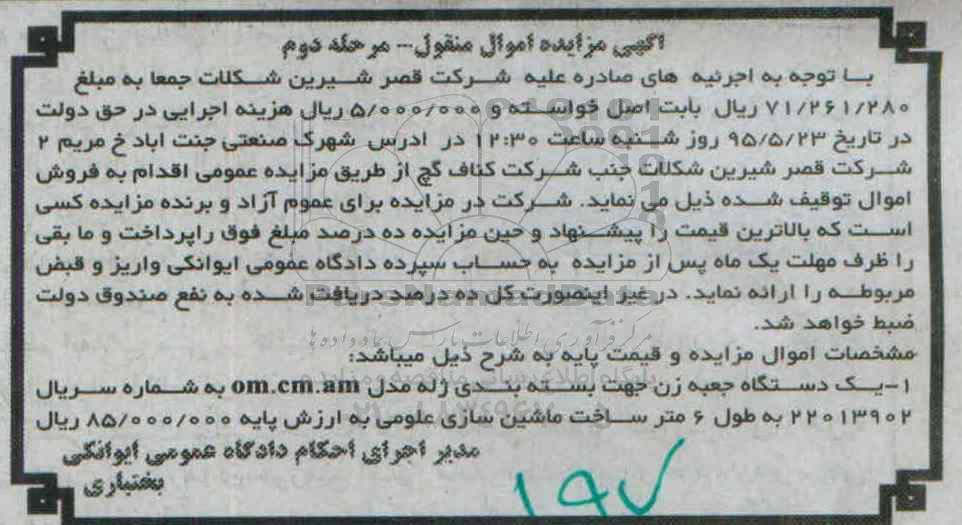 اگهی مزایده اموال منقول-- مرحله دوم
بـا توجه به اجرئیه های صادره علیه شـرکت قصر شـیرین شـکلات جمعا به مبلغ
۷۱/۲۶۱/۲۸۰ ریال بابت اصل خواسـته و ۵/۰۰۰/۰۰۰ ریال هزینه اجرایی در حق دولت
در تاریخ ۹۵/۵/۲۳ روز شـنبه ساعت ۱۲:۳۰ در ادرس شهرک صنعتی جنت اباد خ مریم ۲
شـرکت قصر شیرین شکلات جنب شـرکت کناف گچ از طریق مزایده عمومی اقدام به فروش
اموال توقیف شـده ذیل می نماید. شـرکت در مزایده برای عموم آزاد و برنده مزایده کسی
اسـت که بالاترین قیمت را پیشـنهاد و حین مزایده ده درصد مبلغ فوق راپرداخت و ما بقی
را ظرف مهلت یک ماه پس از مزایده به حسـاب سپرده دادگاه عمومی ایوانکی واریز و قبض
مربوطـه را ارائه نماید. در غیر اینصورت کل ده درصد دریافت شـده به نفع صندوق دولت
ضبط خواهد شد.
مشخصات اموال مزایده و قیمت پایه به شرح ذیل میباشد:
۱-یـک دسـتگاه جعبه زن جهت بسـته بنـدی ژله مدل om.cm.am به شـماره سـریال
۲۲۰۱۳۹۰۲ به طول ۶ متر سـاخت ماشین سازی علومی به ارزش پایه ۸۵/۰۰۰/۰۰۰ ریال
مدیر اجرای احکام دادگاه عمومی ایوانکی
بختیاری
۱۹۷
ParsNamadData
مرکز فرآوری اطلاعات پارس نماد داده ها